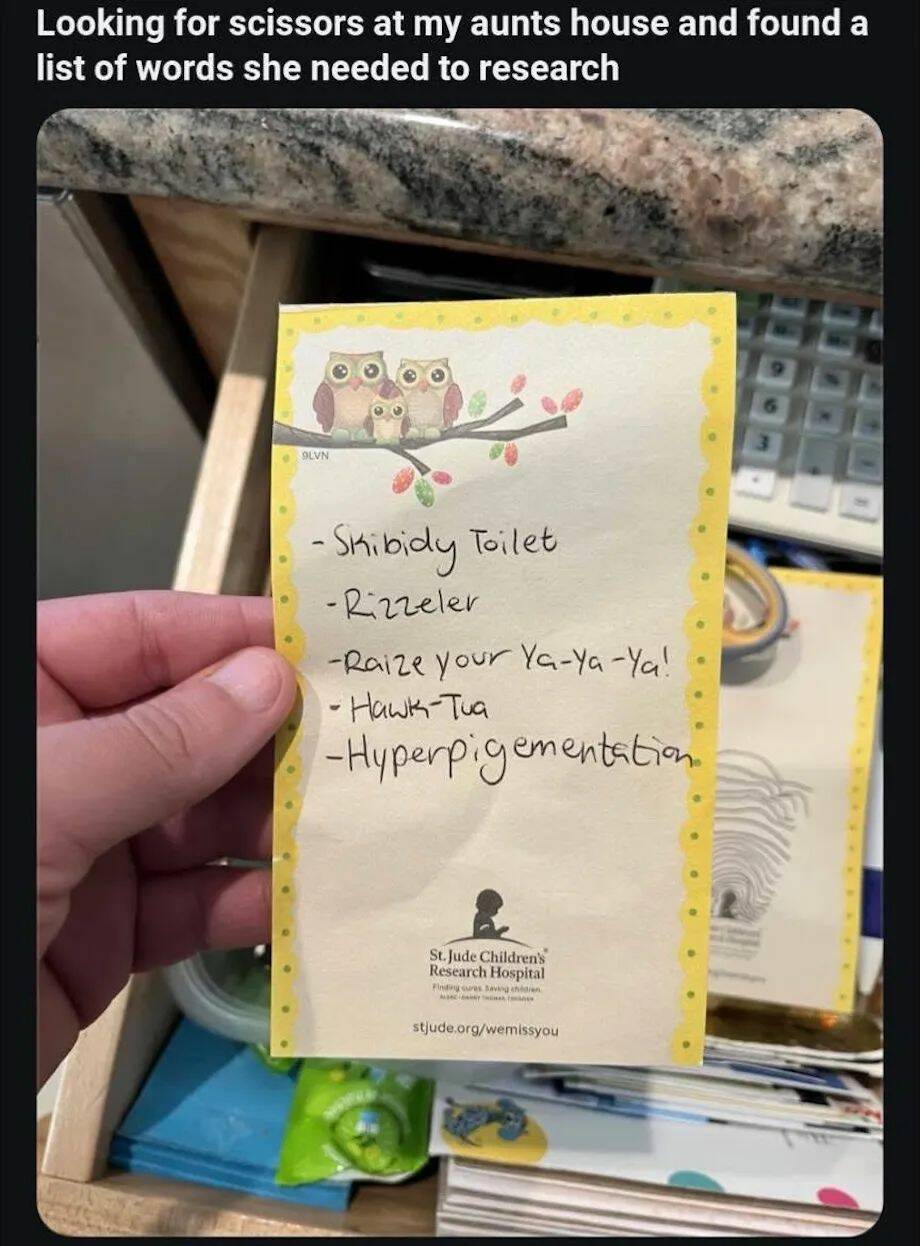 Looking for scissors at my aunts house and found a
list of words she needed to research
9LVN
- Skibidy Toilet
- Rizzeler
- Raize your Ya-Ya-Ya!
- Hawk-Tua
- Hyperpigementation
St. Jude Children's
Research Hospital
Finding cures. Saving children.
stjude.org/wemissyou
9
6
3